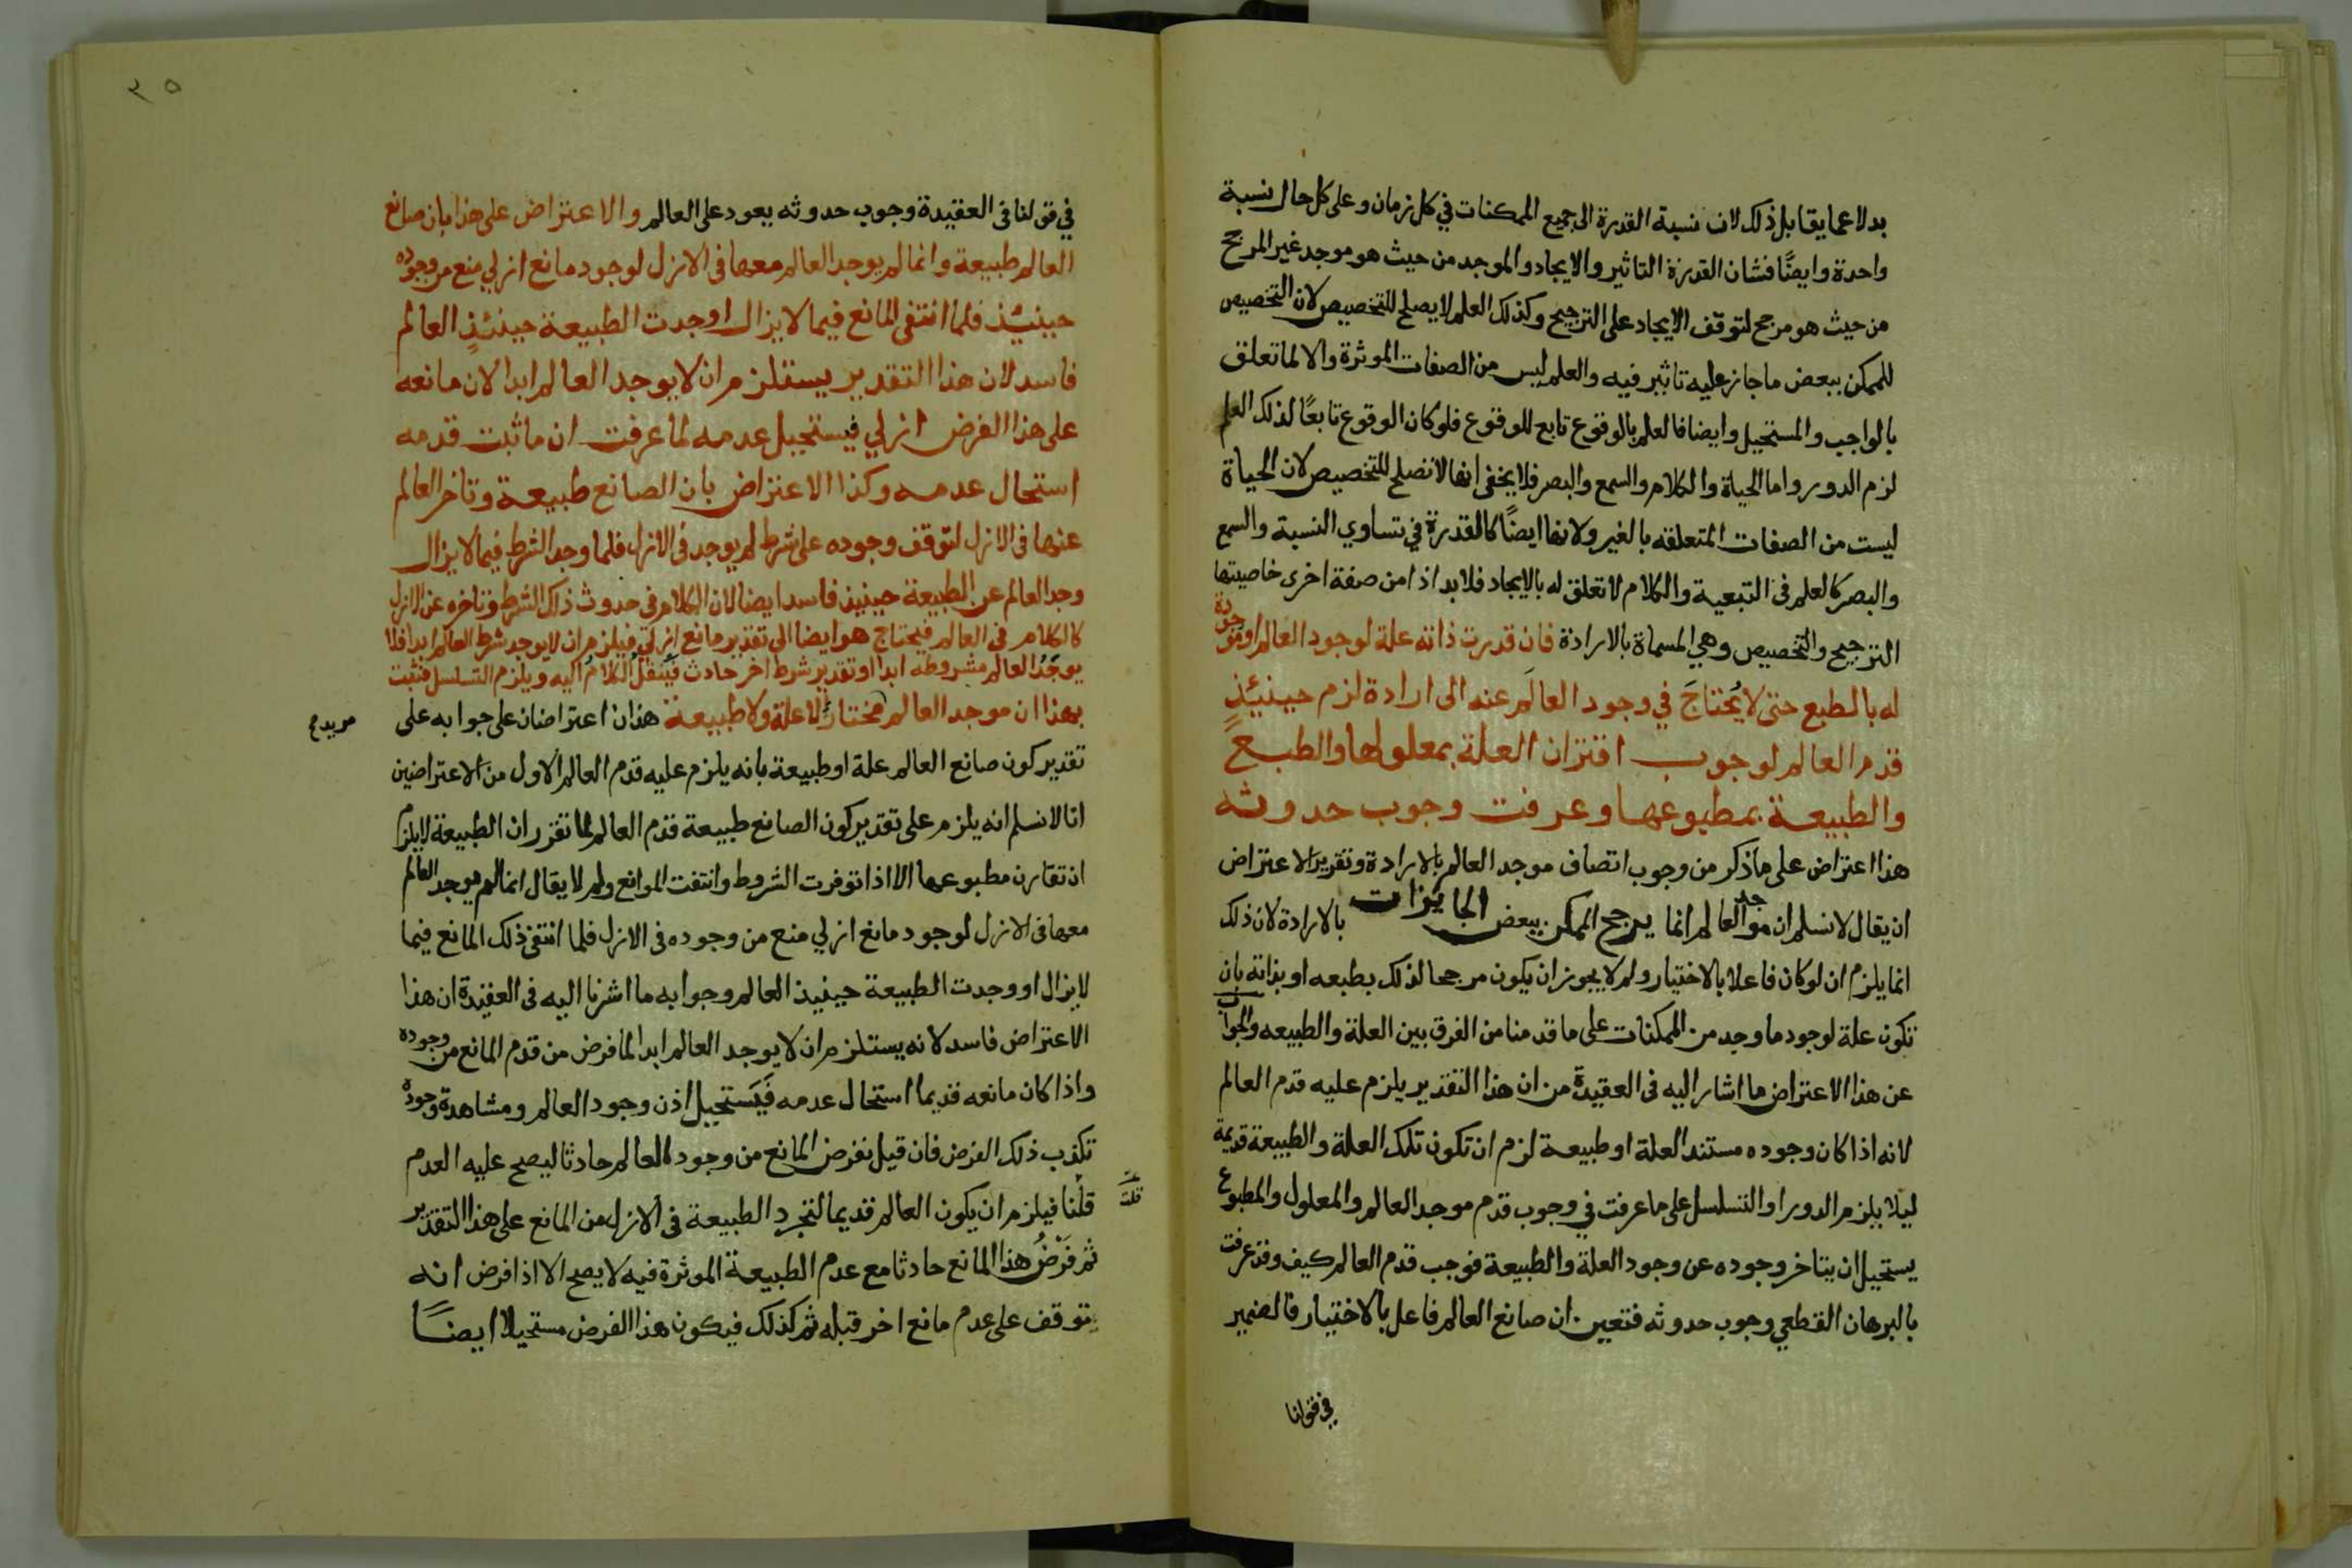 بدلا عما يقابل ذلك لان نسبة القدرة الى جميع الممكنات في كل زمان وعلى كل حال نسبة
واحدة وايضًا فشان القدرة التاثير والايجاد والموجد من حيث هو موجد غير المرجح
من حيث هو مرجح لتوقف الايجاد على الترجيح وكذلك العلم لا يصلح للتخصيص لان التخصيص
للممكن ببعض ما جاز عليه تاثير فيه والعلم ليس من الصفات الموثرة والا لما تعلق
بالواجب والمستحيل وايضا فالعلم بالوقوع تابع للوقوع فلو كان الوقوع تابعًا لذلك العلم
لزم الدور واما الحياة والكلام والسمع والبصر فلا يخفى انها لا تصلح للتخصيص لان الحياة
ليست من الصفات المتعلقه بالغير ولانها ايضًا كالقدرة في تساوي النسبة والسمع
والبصر كالعلم فى التبعية والكلام لا تعلق له بالايجاد فلا بد اذا من صفة اخرى خاصيتها
الترجيح والتخصيص وهي المسماة بالارادة فان قدرت ذاته علة لوجود العالم او موجودة
له بالطبع حتى لا يُحتاجَ في وجود العالَم عنه الى ارادة لزم حينيئذٍ
قدم العالم لوجوب اقتران العلة بمعلولها والطبع
والطبيعة بمطبوعها وعرفت وجوب حدوثه
هذا اعتراض على ما ذكر من وجوب اتصاف موجد العالم بالارادة وتقرير الاعتراض
ان يقال لا نسلم ان موجد العالم انما يرجح الممكن ببعض الجايزات بالارادة لان ذلك
انما يلزم ان لو كان فاعلا بالاختيار ولم لا يجوز ان يكون مرجحا لذلك بطبعه او بذاته بان
تكون علة لوجود ما وجد من الممكنات على ما قدمنا من الفرق بين العلة والطبيعه والجواب
عن هذا الاعتراض ما اشار اليه فى العقيدة من ان هذا التقدير يلزم عليه قدم العالم
لانه اذا كان وجوده مستند العلة او طبيعة لزم ان تكون تلك العلة والطبيعة قديمة
ليلا يلزم الدور او التسلسل على ما عرفت في وجوب قدم موجد العالم والمعلول والمطبوع
يستحيل ان يتاخر وجوده عن وجود العلة والطبيعة فوجب قدم العالم كيف وقد عرفت
بالبرهان القطعي وجوب حدوثه فتعين ان صانع العالم فاعل بالاختيار فالضمير
في قولنا
٣٥
في قولنا فى العقيدة وجوب حدوثه يعود على العالم والاعتراض على هذا بان صانع
العالم طبيعة وانما لم يوجد العالم معها فى الازل لوجود مانع ازلي منع من وجوده
حينيئذ فلما انتفى المانع فيما لا يزال اوجدت الطبيعة حينئذٍ العالم
فاسد لان هذا التقدير يستلزم ان لا يوجد العالم ابدا لان مانعه
على هذا الفرض ازلي فيستحيل عدمه لما عرفت ان ما ثبت قدمه
استحال عدمه وكذا الاعتراض بان الصانع طبيعة وتاخر العالم
عنها فى الازل لتوقف وجوده على شرط لم يوجد فى الازل فلما وجد الشرط فيما لا يزال
وجد العالم عن الطبيعة حينيذ فاسد ايضا لان الكلام فى حدوث ذلك الشرط وتاخره عن الازل
كالكلام فى العالم فيحتاج هو ايضا الى تقدير مانع ازلي فيلزم ان لا يوجد شرط العالم ابدا فلا
يوجَدُ العالم مشروطه ابدا او تقدير شرط اخر حادث فيُنقلُ الكلامُ اليه ويلزم التسلسل فثبت
بهذا ان موجد العالم مختار لا علة ولا طبيعة هذان اعتراضان على جوابه على
مريد
تقدير كون صانع العالم علة او طبيعة بانه يلزم عليه قدم العالم الاول من الاعتراضين
انا لا نسلم انه يلزم على تقدير كون الصانع طبيعة قدم العالم لما تقرر ان الطبيعة لا يلزم
ان تقارن مطبوعها الا اذا توفرت الشروط وانتفت الموانع ولم لا يقال انما لم يوجد العالم
معها فى الازل لوجود مانع ازلي منع من وجوده فى الازل فلما انتفى ذلك المانع فيما
لا يزال او وجدت الطبيعة حينيذ العالم وجوابه ما اشرنا اليه فى العقيدة ان هذا
الاعتراض فاسد لانه يستلزم ان لا يوجد العالم ابدا لما فرض من قدم المانع من وجوده
واذا كان مانعه قديما استحال عدمه فَيَستحيل اذن وجود العالم ومشاهدة وجوده
تكذب ذلك الفرض فان قيل نفرض المانع من وجود العالم حادثا ليصح عليه العدم
قلت
قلنا فيلزم ان يكون العالم قديما لتجرد الطبيعة فى الازل من المانع على هذا التقدير
ثم فَرْضُ هذا المانع حادثا مع عدم الطبيعة الموثرة فيه لا يصح الا اذا فرض انه
يتوقف على عدم مانع اخر قبله ثم كذلك فيكون هذا الفرض مستحيلا ايضًا